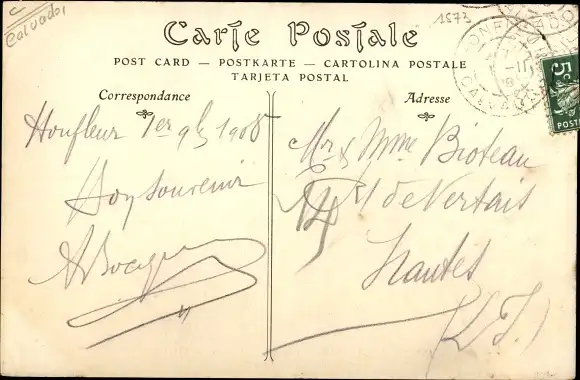 C
Calvados
1573
Carte Postale
POST CARD — POSTKARTE — CARTOLINA POSTALE
TARJETA POSTAL
Correspondance
Adresse
HONFLEUR
CALVADOS
5c
POSTES
Honfleur 1er 9bre 1908
Bon souvenir
Mr & Mme Bioteau
14 r de Vertais
Nantes
(L I.)